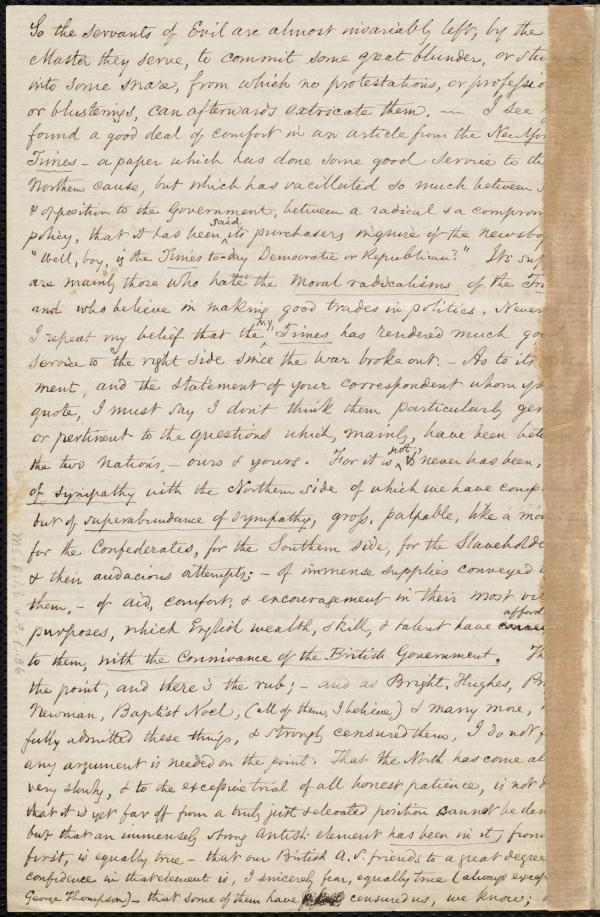 So the servants of Evil are almost invariably left, by the
Master they serve, to commit some great blunder, or
into some snare, from which no protestations, or
or blusterings, can afterwards extricate them. — I see
found a good deal of comfort in an article from the New
Times - a paper which has done some good service to
Northern cause, but which has vacillated so much between
& opposition to the Government, between a radical & a
policy, that it has been said, its purchasers inquire of the
"Well, boy, is the Times to-day Democratic or Republican?" Its
are mainly those who hate the Moral radicalisms of the
and who believe in making good trades in politics.
I repeat my belief that the N.Y. Times has rendered much
service to the right side since the War broke out. - As to its
ment, and the statement of your correspondent whom
quote, I must say I don't think them particularly
or pertinent to the questions which, mainly, have been
the two nations, - ours & yours. For it is not, & never has been,
of sympathy with the Northern side of which we have
but of superabundance of sympathy, gross, palpable, like a
for the Confederates, for the Southern side, for the
& their audacious attempts; - of immense supplies conveyed
them, - of aid, comfort, & encouragement in their most
purposes, which English wealth, skill, & talent have afford
to them, with the connivance of the British Government.
the point, and there's the rub; - and as Bright, Hughes,
Newman, Baptist Noel, (all of them, I believe) & many more,
fully admitted these things, & strongly censured them, I do not
any argument is needed on the point. That the North has come
very slowly, & to the excessive trial of all honest patience, is not
that it is yet far off from a truly just & elevated position cannot be
but that an immensely strong Antisl: element has been in it, from
first, is equally true - that our British A.S. friends to a great degree
confidence in that element is, I sincerely fear, equally true (always
George Thompson) - that some of them have censured us, we know;